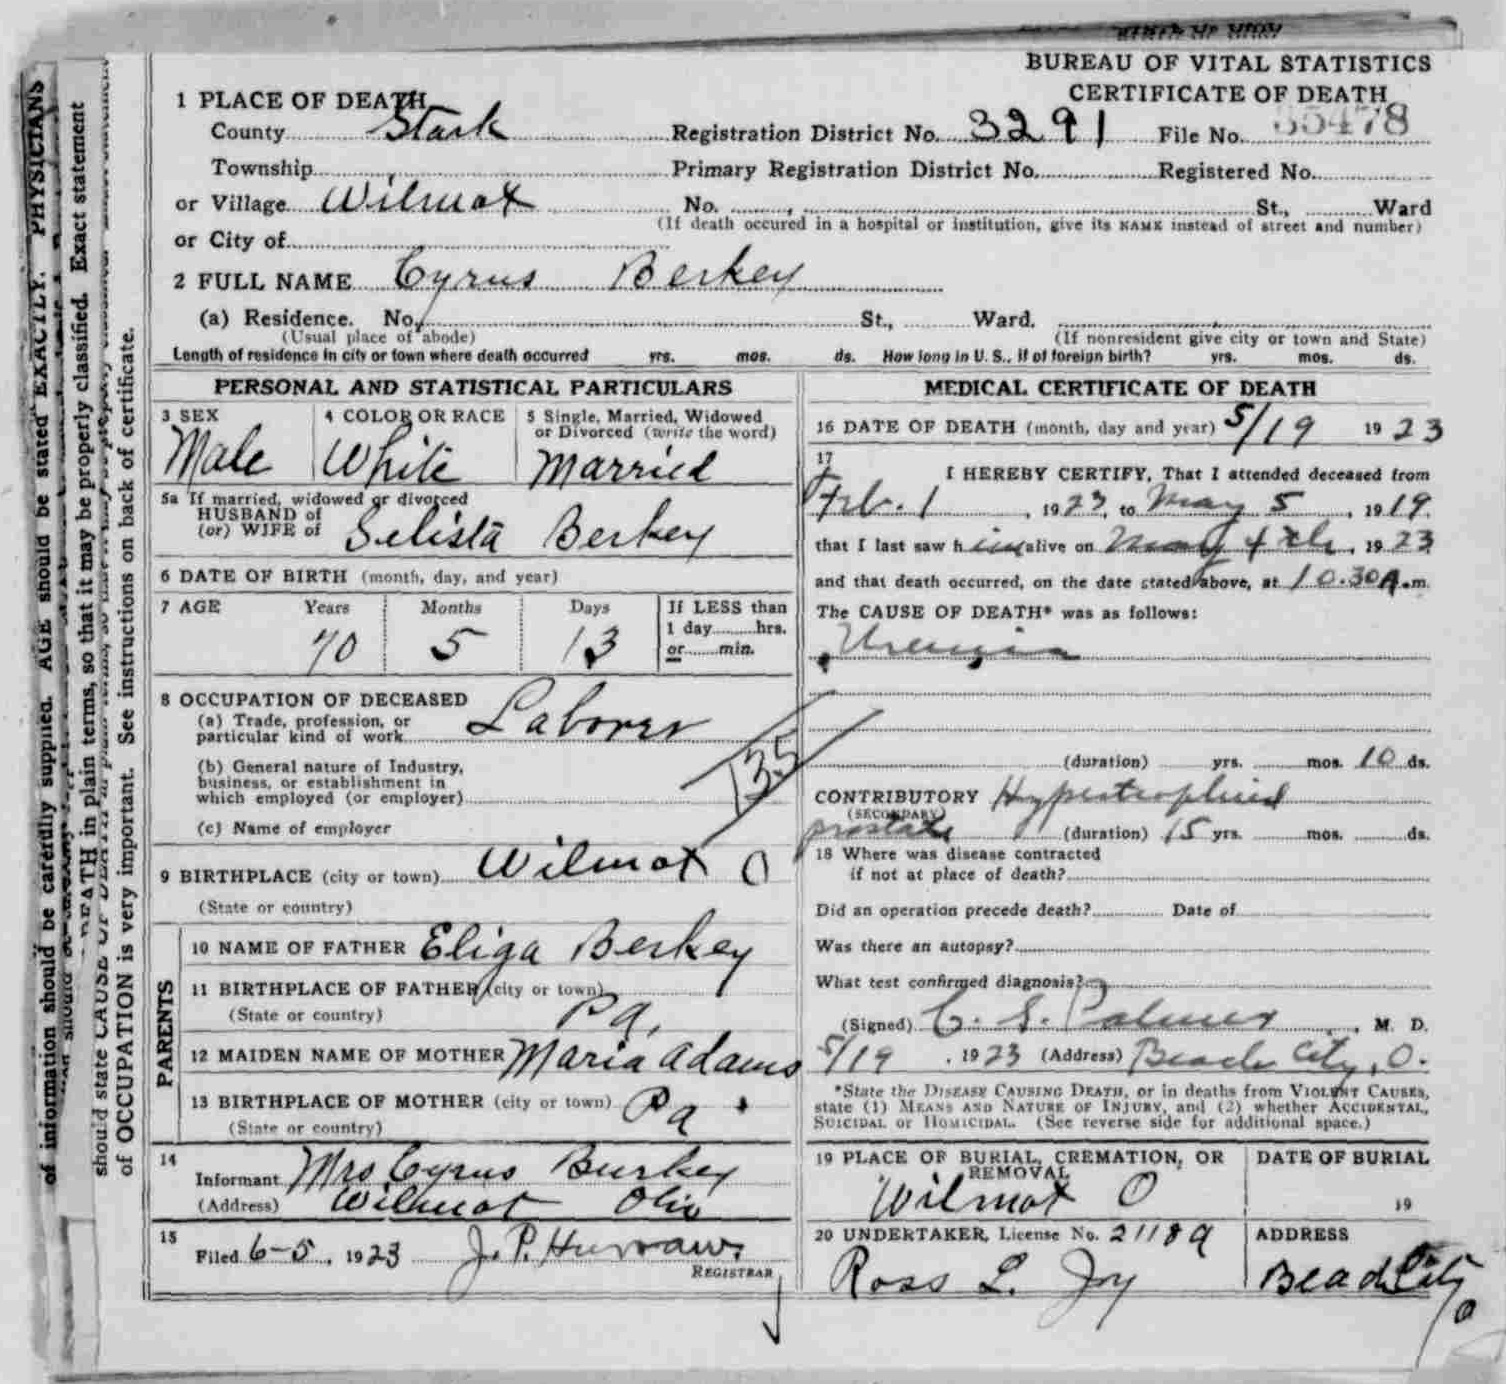 BUREAU OF VITAL STATISTICS
CERTIFICATE OF DEATH
1 PLACE OF DEATH
County Stark Registration District No. 3291 File No. 35478
Township Primary Registration District No. Registered No.
or Village Wilmot No. , St., Ward
(If death occured in a hospital or institution, give its NAME instead of street and number)
or City of
2 FULL NAME Cyrus Berkey
(a) Residence. No. St., Ward.
(Usual place of abode) (If nonresident give city or town and State)
Length of residence in city or town where death occurred yrs. mos. ds. How long in U. S., if of foreign birth? yrs. mos. ds.
PERSONAL AND STATISTICAL PARTICULARS
3 SEX 4 COLOR OR RACE 5 Single, Married, Widowed
or Divorced (write the word)
Male White Married
5a If married, widowed or divorced
HUSBAND of
(or) WIFE of Selista Berkey
6 DATE OF BIRTH (month, day, and year)
7 AGE Years Months Days If LESS than
1 day hrs.
or min.
70 5 13
8 OCCUPATION OF DECEASED
(a) Trade, profession, or
particular kind of work Laborer
(b) General nature of Industry,
business, or establishment in
which employed (or employer)
(c) Name of employer
135
9 BIRTHPLACE (city or town) Wilmot O
(State or country)
PARENTS
10 NAME OF FATHER Eliga Berkey
11 BIRTHPLACE OF FATHER (city or town)
(State or country) Pa.
12 MAIDEN NAME OF MOTHER Maria Adams
13 BIRTHPLACE OF MOTHER (city or town) Pa
(State or country)
14
Informant Mrs Cyrus Burkey
(Address) Wilmot Ohio
15
Filed 6-5, 1923 J. P.
REGISTRAR
MEDICAL CERTIFICATE OF DEATH
16 DATE OF DEATH (month, day and year) 5/19 1923
17
I HEREBY CERTIFY, That I attended deceased from
Feb. 1, 1923, to May 5, 1919.
that I last saw him alive on May 4th, 1923
and that death occurred, on the date stated above, at 10.30 A.m.
The CAUSE OF DEATH* was as follows:
Uremia
(duration) yrs. mos. 10 ds.
CONTRIBUTORY Hypertrophied
(SECONDARY)
prostate (duration) 15 yrs. mos. ds.
18 Where was disease contracted
if not at place of death?
Did an operation precede death? Date of
Was there an autopsy?
What test confirmed diagnosis?
(Signed) C. S. Palmer, M. D.
5/19, 1923 (Address) Beach City, O.
*State the DISEASE CAUSING DEATH, or in deaths from VIOLENT CAUSES,
state (1) MEANS AND NATURE OF INJURY, and (2) whether ACCIDENTAL,
SUICIDAL or HOMICIDAL. (See reverse side for additional space.)
19 PLACE OF BURIAL, CREMATION, OR
REMOVAL
Wilmot O
DATE OF BURIAL
19
20 UNDERTAKER, License No. 2118 9
Ross L. Joy
ADDRESS
Beach City O
of information should be carefully supplied. AGE should be stated EXACTLY. PHYSICIANS
DEATH in plain terms, so that it may be properly classified. Exact statement
should state CAUSE OF DEATH
of OCCUPATION is very important. See instructions on back of certificate.